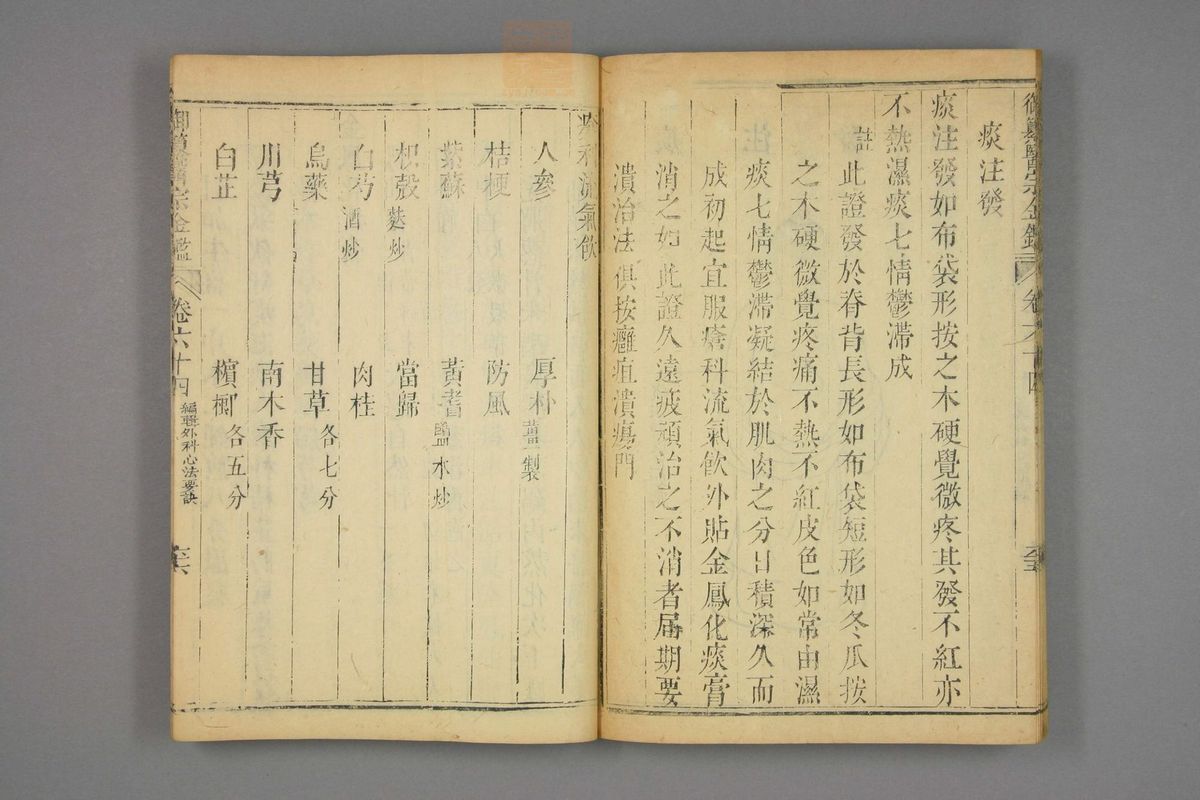 御纂醫宗金鑑 卷六十四
痰注發
痰注發如布袋形按之木硬覺微疼其發不紅亦
不熱濕痰七情鬱滯成
註此證發於脊背長形如布袋短形如冬瓜按
之木硬微覺疼痛不熱不紅皮色如常由濕
痰七情鬱滯凝結於肌肉之分日積深久而
成初起宜服瘡科流氣飲外貼金鳳化痰膏
消之如此證久遠疲頑治之不消者届期要
潰治法俱按癰疽潰瘍門
科流氣飲
人參 厚朴薑製
桔梗 防風
紫蘇 黃耆鹽水炒
枳殼麩炒 當歸
白芍酒炒 肉桂
烏藥 甘草各七分
川芎 南木香
白芷 檳榔各五分
御纂醫宗金鑑 卷六十四 編輯外科心法要訣